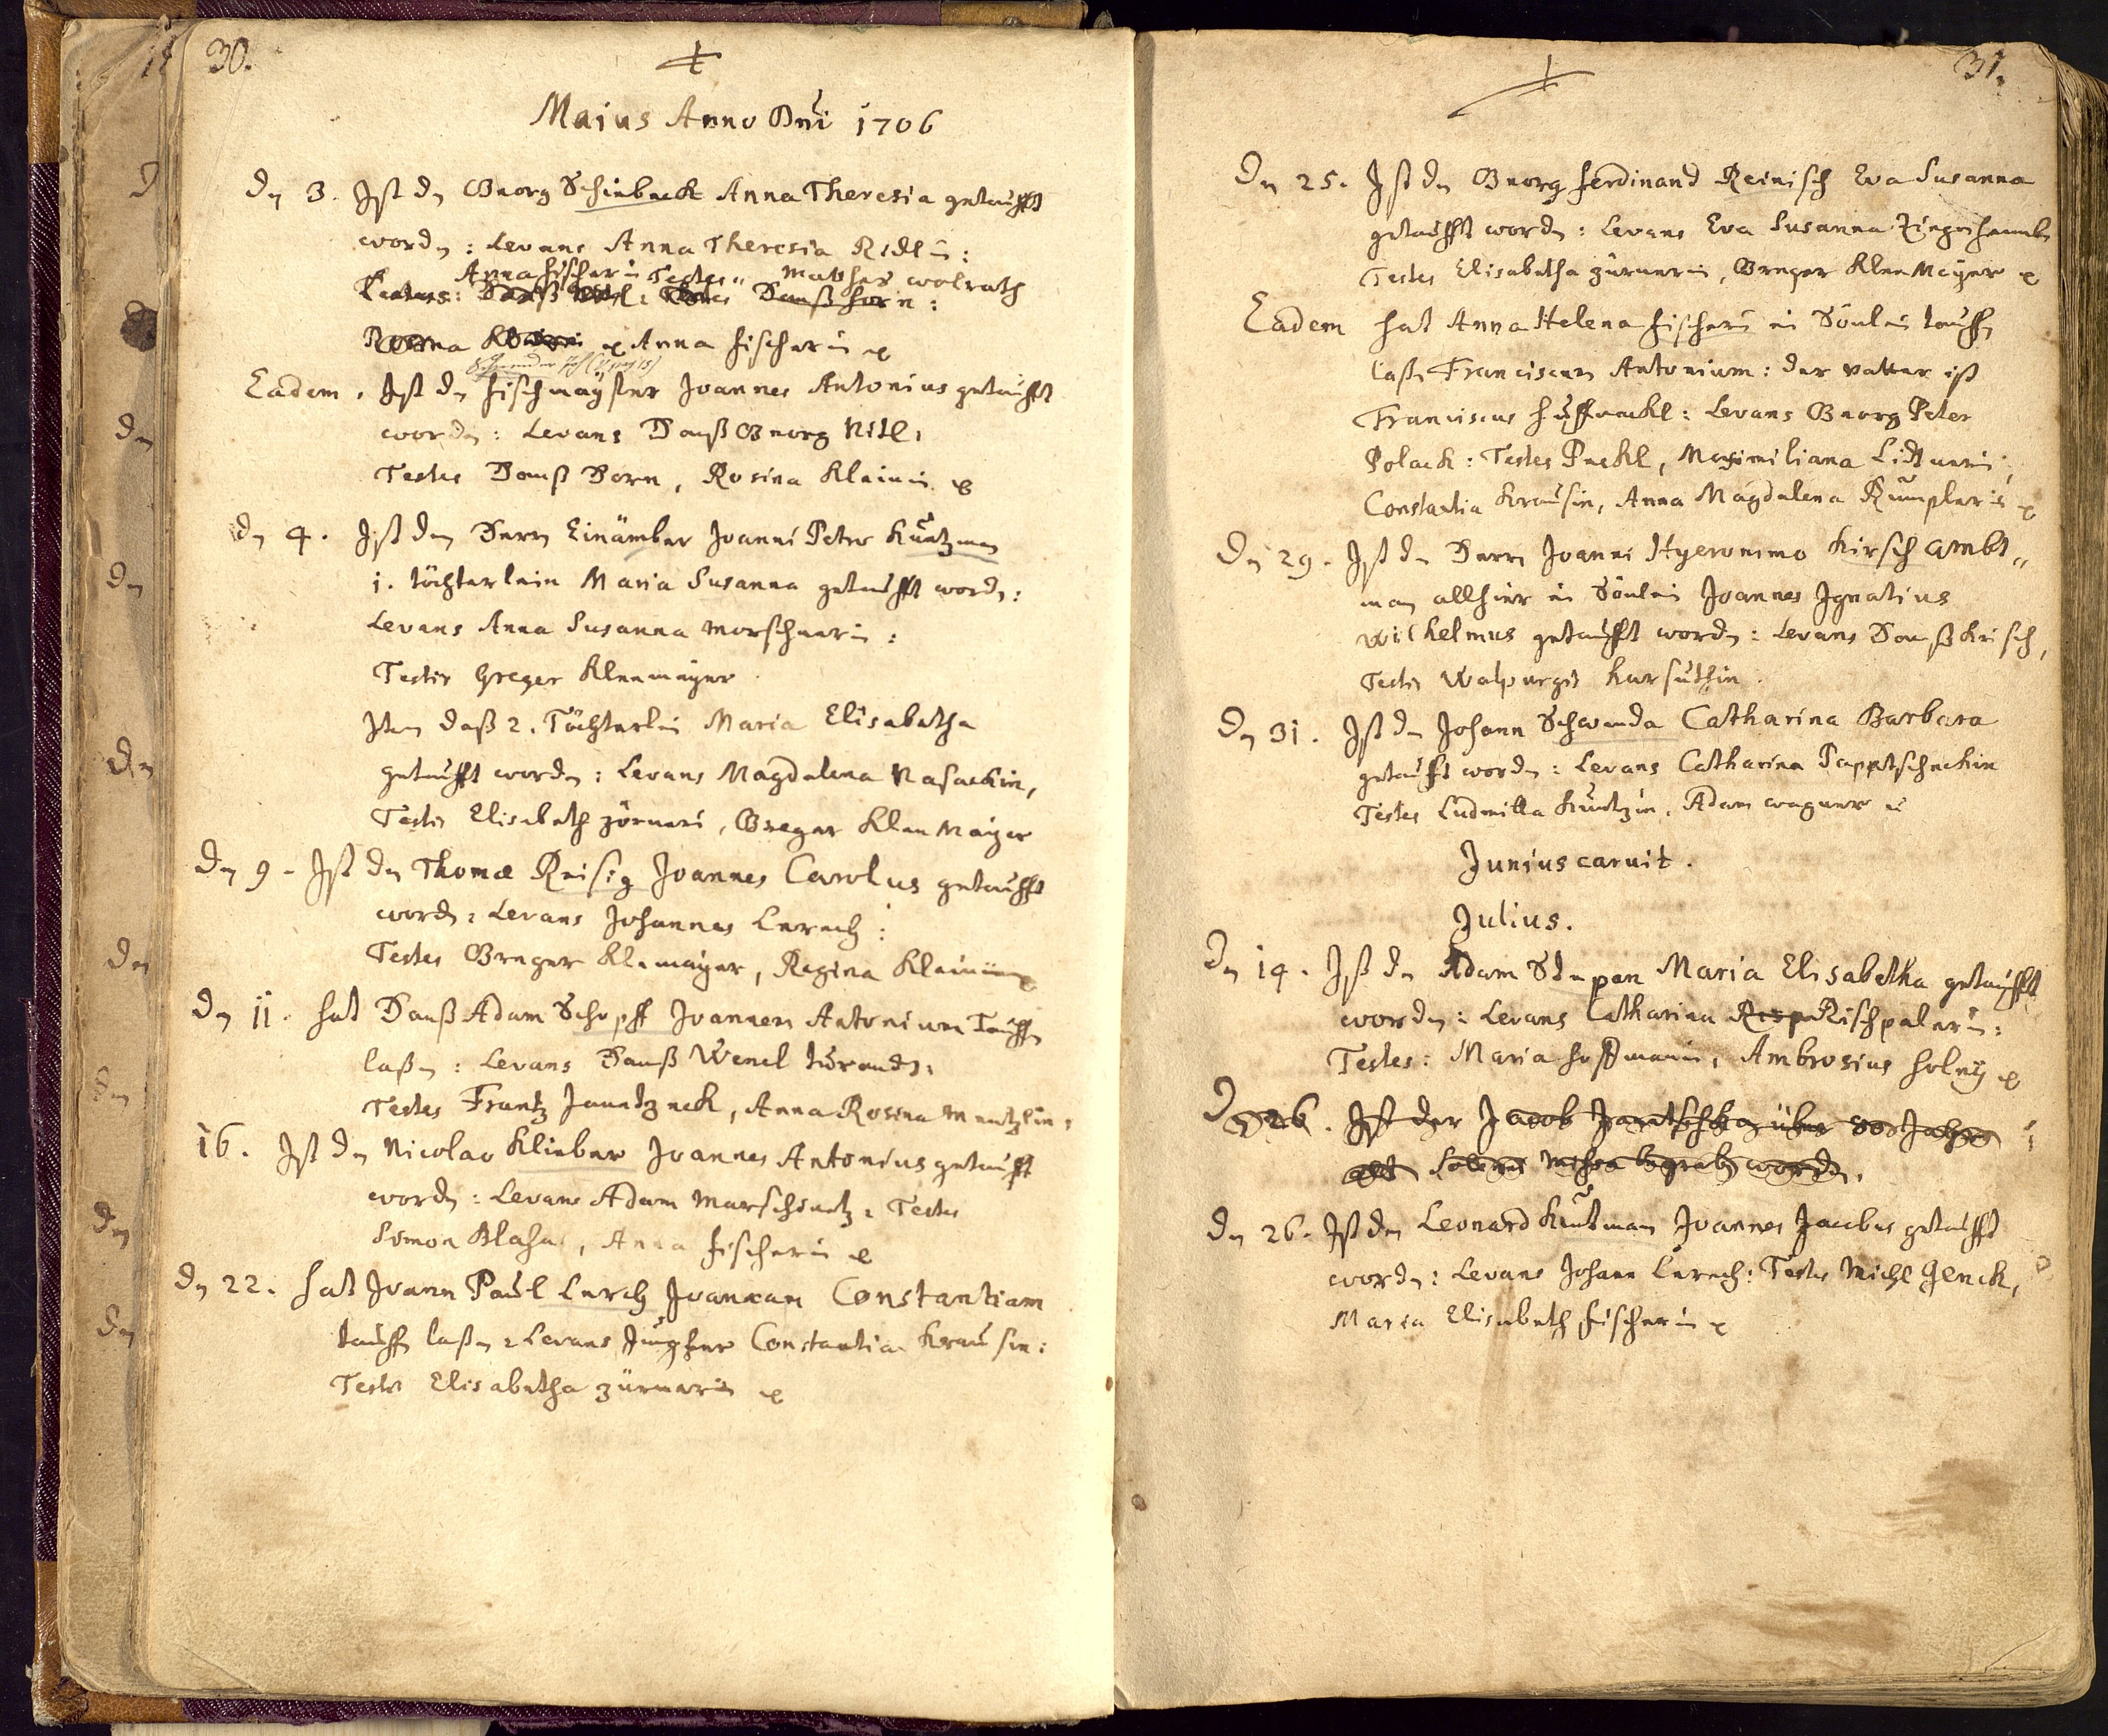 30.
Maius Anno Dni 1706
Dn 3. Ist dn Georg Schinbeck Anna Theresia getaufft
wordn: Levans Anna Theresia Ridlin:
Anna fischerin Testes Matthes wolrath
Hanß horn:
Anna fischerin
Eadem. Ist dn fischmayster Joannes Antonius getaufft
wordn: Levans Hanß Georg Ritl:
Testes Hanß Horn, Rosina Kleinin
dn 4. Ist dem Herrn Einämber Joanni Petro Kuntzman
1. töchterlein Maria Susanna getaufft wordn:
Levans Anna Susanna Morschnerin:
Testis Greger Kleemayer
Item daß 2. Töchterlin Maria Elisabetha
getaufft wordn: Levans Magdalena Nasackin,
Testis Elisabeth zörneri, Greger Klee Mayer
Dn 9. Ist dn Thomæ Reisig Joannes Carolus getaufft
wordn: Levans Johannes Lerch:
Testes Greger Klemayer, Regina Kleinin
Dn 11. hat Hanß Adam Schopff Joannem Antonium Tauffn
laßn: Levans Hanß Wencl
Testes Frantz Jauntzeck, Anna Rosina Mentzlin,
16. Ist dn Nicolao Klieber Joannes Antonius getaufft
wordn: Levans Adam Marschnetz: Testes
Simon Blaha, Anna fischerin
dn 22. hat Joann Paul Lerch Joannam Constantiam
tauffn laßn: Levans Jungfer Constantia Krausin:
Testes Elisabetha zürnerin
31.
Dn 25. Ist dn Georg ferdinand Reinisch Eva Susanna
getaufft wordn: Levans Eva Susanna
Testes Elisabetha zürnerin, Greger Klee Meÿer
Eadem hat Anna Helena fischerin ein Sönlein tauffn
laßn Franciscum Antonium: der vatter ist
Franciscus: Levans Georg Peter
Polack: Testes Peckl, Maximiliana
Constantia Krausin, Anna Magdalena Rumplerin
Dn 29. Ist dn Herrn Joanni Hyeronimo Kirsch ambt„
man allhier ein Sönlein Joannes Ignatius
Wilhelmus getaufft wordn: Levans Hanß Kirsch,
Testis Walpurgis Kursuthin.
Dn 31. Ist dn Johann Schwenda Catharina Barbara
getaufft wordn: Levans Catharina Papptschekin
Testes Ludmilla Kuntzin, Adam wagner
Junius caruit.
Julius.
Dn 14. Ist dn Adam Stepan Maria Elisabetha getaufft
wordn: Levans Catharina Rischpalerin:
Testes: Maria hoffmanin, Ambrosius holeÿ
Dn 26. Ist der Jacob Jarotschka über 80 Jahre
alt wordn.
dn 26. Ist dn Leonard Kutman Joannes Jacobus getaufft
wordn: Levans Johann Lerch: Testes Michl Jenck,
Maria Elisabeth fischerin